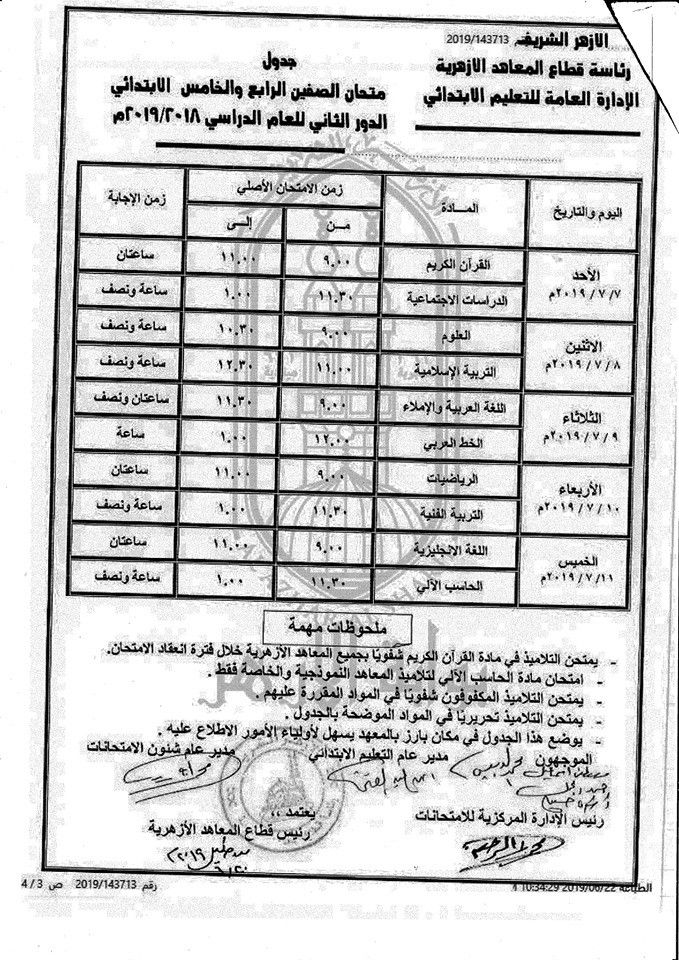 الازهر الشريف 2019/143713
رئاسة قطاع المعاهد الازهرية
الإدارة العامة للتعليم الابتدائي
جدول
متحان الصفين الرابع والخامس الابتدائي
الدور الثاني للعام الدراسي ٢٠١٩/٢٠١٨م
اليوم والتاريخ المـــادة زمن الامتحان الأصلي زمن الإجابة
مـن إلـى
الأحد ٢٠١٩/٧/٧م القرآن الكريم ٩.٠٠ ١١.٠٠ ساعتان
الدراسات الاجتماعية ١١.٣٠ ١.٠٠ ساعة ونصف
الاثنين ٢٠١٩/٧/٨م العلوم ٩.٠٠ ١٠.٣٠ ساعة ونصف
التربية الإسلامية ١١.٠٠ ١٢.٣٠ ساعة ونصف
الثلاثاء ٢٠١٩/٧/٩م اللغة العربية والإملاء ٩.٠٠ ١١.٣٠ ساعتان ونصف
الخط العربي ١٢.٠٠ ١.٠٠ ساعة
الأربعاء ٢٠١٩/٧/١٠م الرياضيات ٩.٠٠ ١١.٠٠ ساعتان
التربية الفنية ١١.٣٠ ١.٠٠ ساعة ونصف
الخميس ٢٠١٩/٧/١١م اللغة الانجليزية ٩.٠٠ ١١.٠٠ ساعتان
الحاسب الآلي ١١.٣٠ ١.٠٠ ساعة ونصف
ملحوظات مهمة
- يمتحن التلاميذ في مادة القرآن الكريم شفويًا بجميع المعاهد الأزهرية خلال فترة انعقاد الامتحان.
- امتحان مادة الحاسب الآلي لتلاميذ المعاهد النموذجية والخاصة فقط .
- يمتحن التلاميذ المكفوفون شفويًا في المواد المقررة عليهم .
- يمتحن التلاميذ تحريريًا في المواد الموضحة بالجدول .
- يوضع هذا الجدول في مكان بارز بالمعهد يسهل لأولياء الأمور الاطلاع عليه .
الموجهون مدير عام التعليم الابتدائي مدير عام شئون الامتحانات
رئيس الإدارة المركزية للامتحانات
يعتمد ،،
رئيس قطاع المعاهد الأزهرية
الطباعة 2019/06/22 10:34:29
رقم 2019/143713 ص 3 / 4